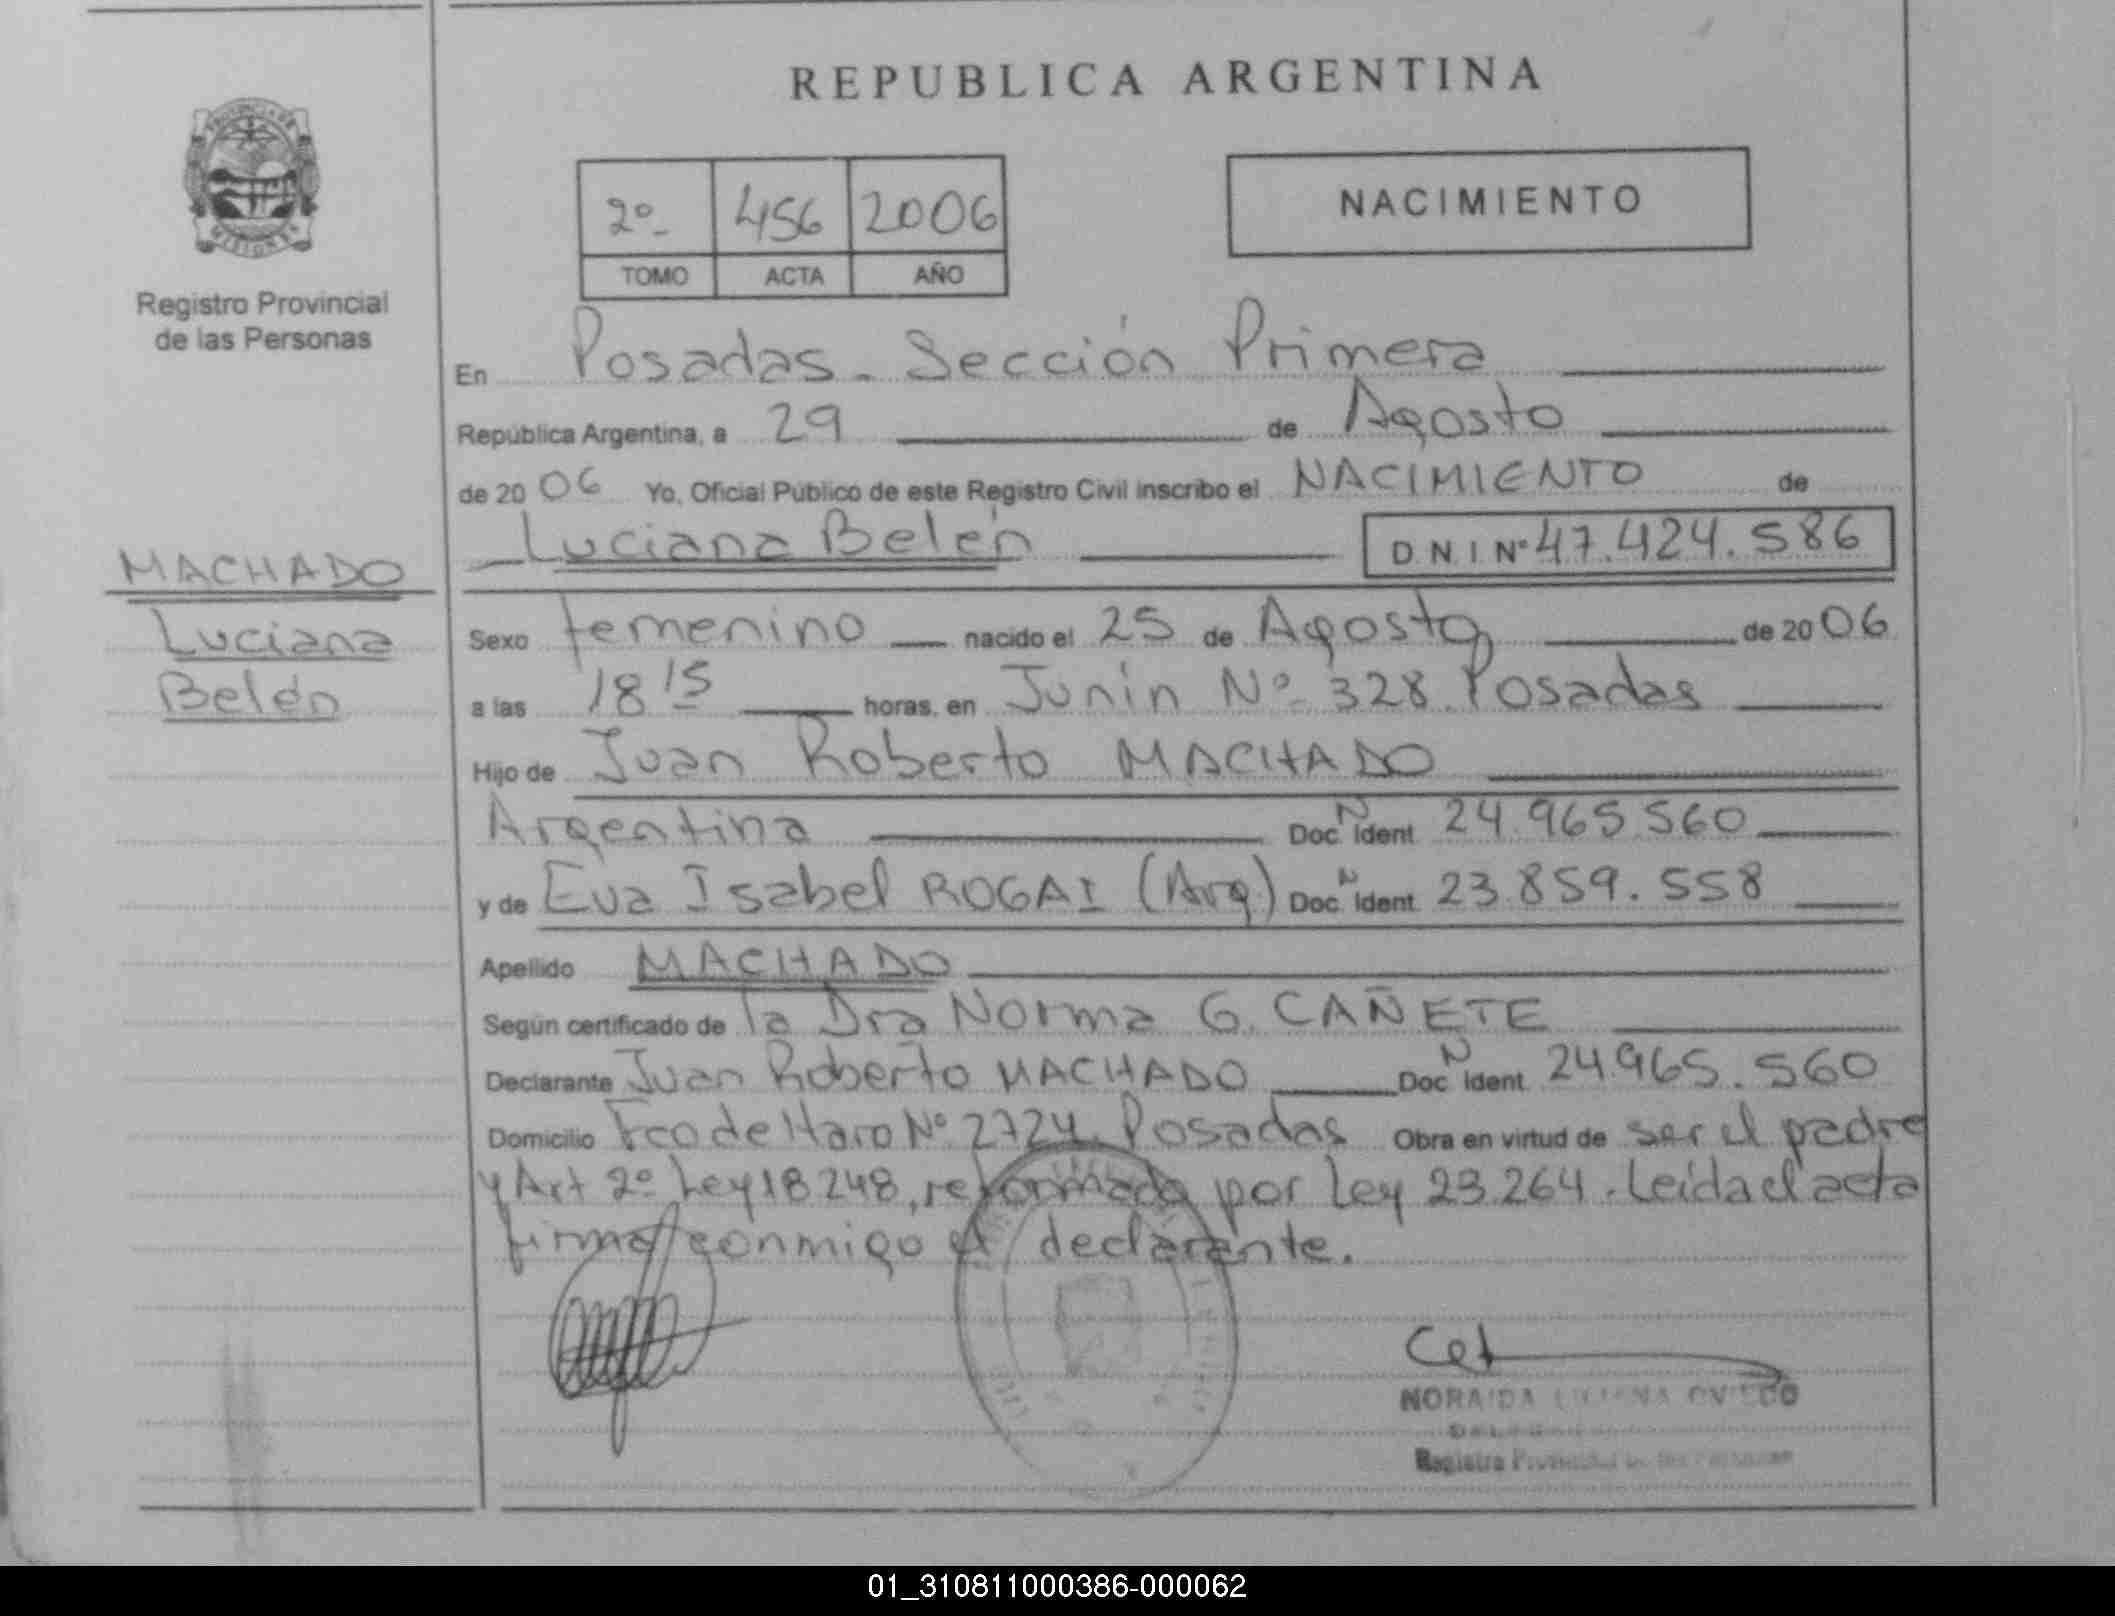 REPUBLICA ARGENTINA
PROVINCIA DE
MISIONES
Registro Provincial
de las Personas
2º 456 2006
TOMO ACTA AÑO
NACIMIENTO
En Posadas - Sección Primera
República Argentina, a 29 de Agosto
de 2006 Yo, Oficial Público de este Registro Civil inscribo el NACIMIENTO de
Luciana Belén D.N.I Nº 47.424.586
MACHADO
Luciana
Belén
Sexo femenino nacido el 25 de Agosto de 2006
a las 18 15 horas, en Junín Nº 328. Posadas
Hijo de Juan Roberto MACHADO
Argentina Doc. N Ident 24.965.560
y de Eva Isabel ROGAI (Arg.) Doc. N Ident. 23.859.558
Apellido MACHADO
Según certificado de la Dra Norma G. CAÑETE
Declarante Juan Roberto MACHADO Doc. N Ident. 24.965.560
Domicilio Fco de Haro Nº 2724. Posadas Obra en virtud de ser el padre
y Art 2º Ley 18.248, reformada por Ley 23.264. Leída el acta
firma conmigo el declarante.
NORAIDA LILIANA OVIEDO
Registro Provincial de las Personas
01_310811000386-000062